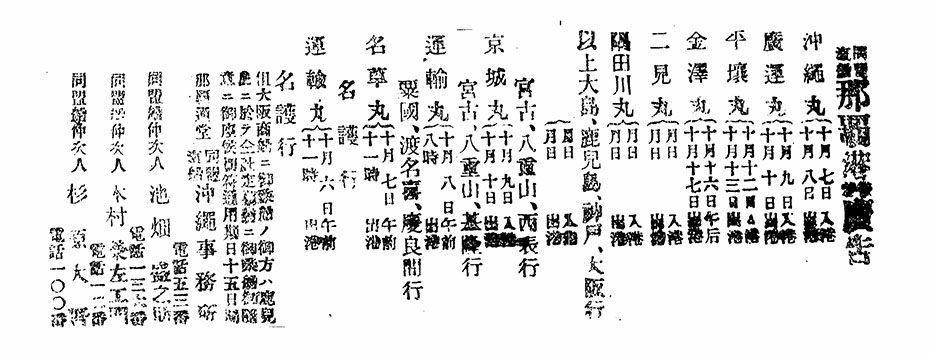 同盟
滊船
那覇港
沖繩丸
十月七日入港
十月八日出港
廣運丸
十月九日入港
十月十日出港
平壤丸
十月十二日入港
十月十三日出港
金澤丸
十月十六日午后
十月十七日出港
二見丸
月日入港
月日出港
隅田川丸
月日入港
月日出港
以上大島、鹿兒島、神戸、大阪行
宮古、八重山、西表行
京城丸
十月九日入港
十月十日出港
宮古、八重山、基隆行
運輸丸
十月八日午前
八時出港
粟國、渡名喜、慶良間行
名尊丸
十月七日午前
十一時出港
名護行
運輸丸
十月六日午前
十一時出港
名護行
但大阪商船ニ御乘船ノ御方ハ鹿兒
島ニ於テ
意ニ御座候通用期日十五日間
那覇通堂
同盟
滊船
沖繩事務所
電話五三番
同盟船仲次人
池畑
電話一三六番
同盟船仲次人
木村
電話一二番
同盟船仲次人
杉
電話一〇〇番